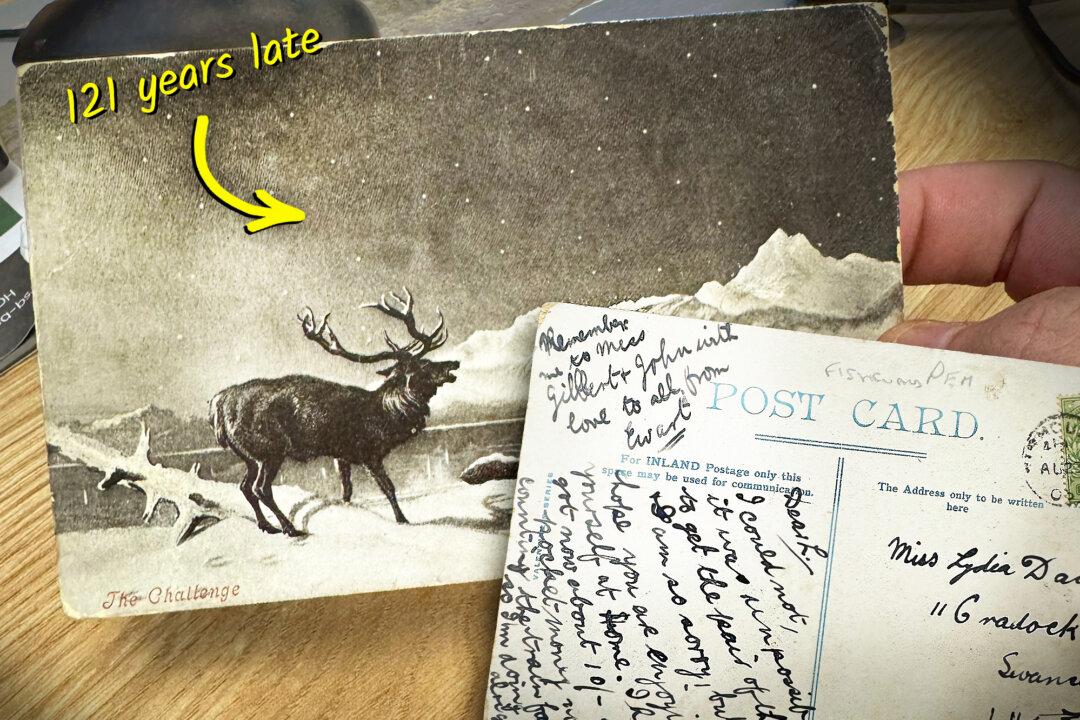 121 years late
The Challenge
Remember
me to Miss
Gilbert + John with
love to all from
Ewart
POST CARD.
For INLAND Postage only this
space may be used for communication.
The Address only to be written
here
Dear L.
I could not,
it was impossib
to get the pair of th
I am so sorry! but
I hope you are enjoy
yourself at Home.
got now about 10/-
pocket money
counting the train fa
so I'm doing
Miss Lydia Dav
11 Cradock
Swans